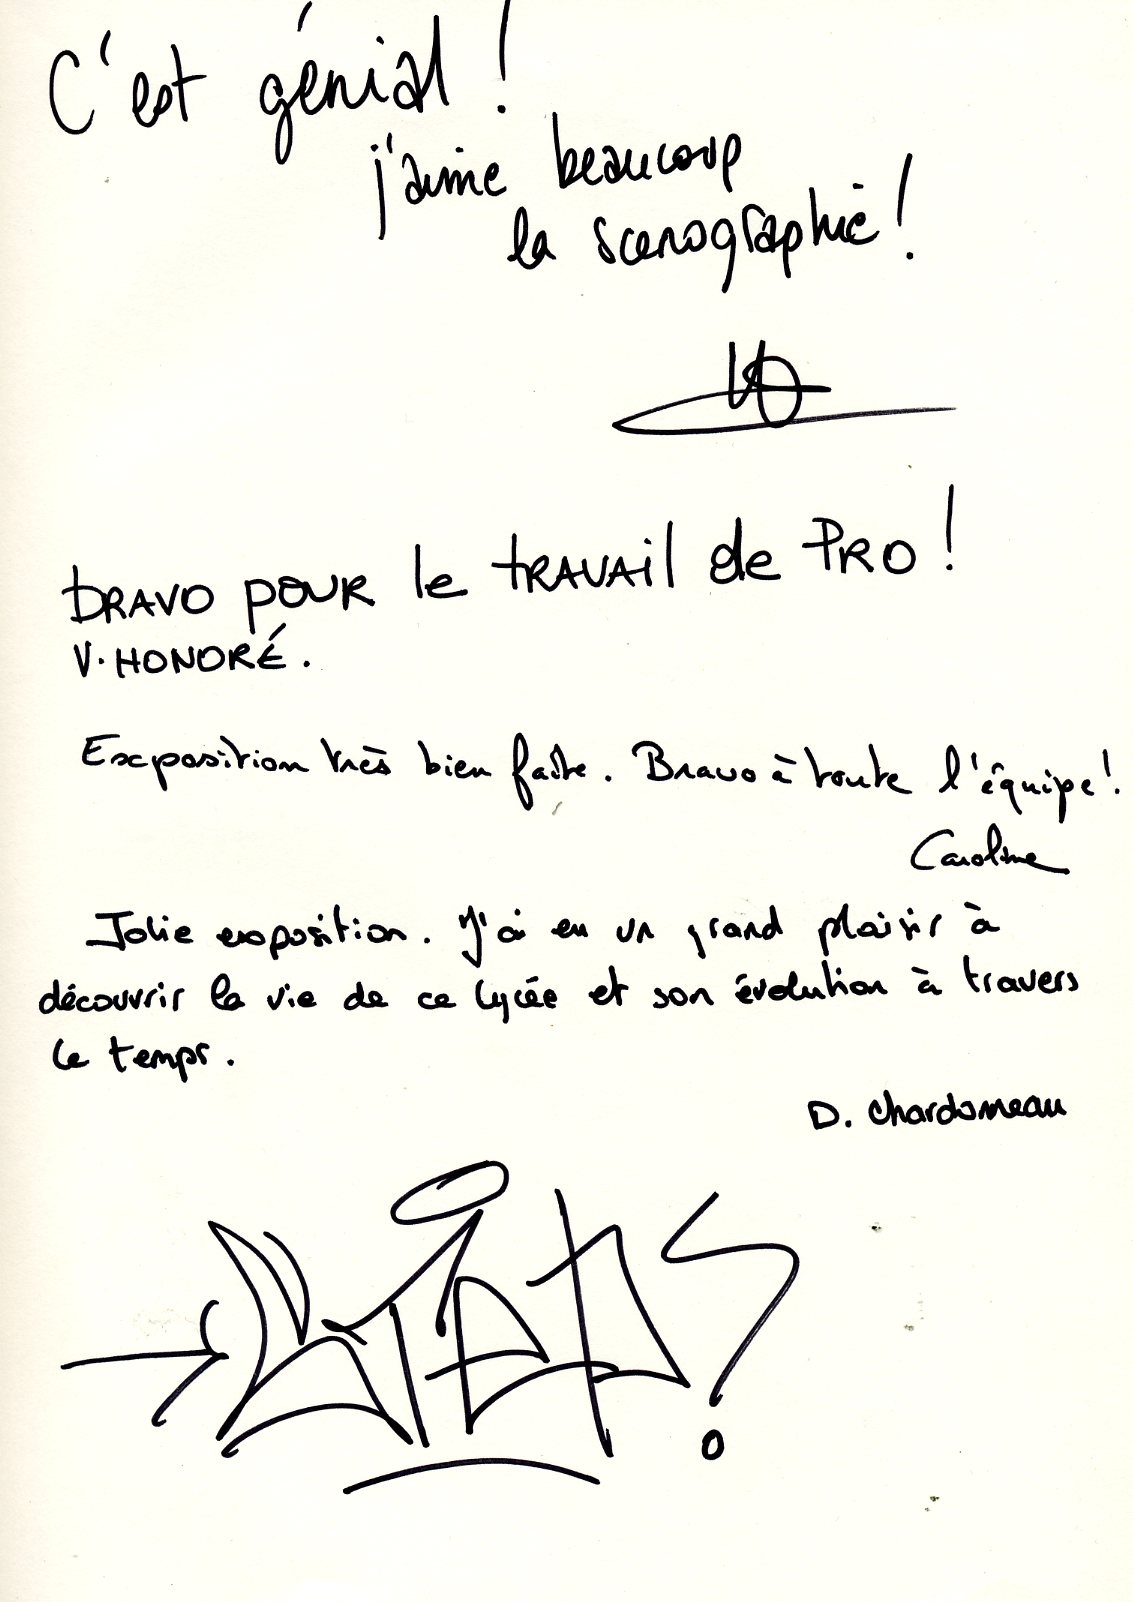 C'est génial !
j'aime beaucoup
la scenographie !
BRAVO POUR le tRAVAil de PRO !
V. HONORÉ.
Exposition très bien faite. Bravo à toute l'équipe !
Caroline
Jolie exposition. J'ai eu un grand plaisir à
découvrir la vie de ce lycée et son évolution à travers
le temps.
D. Chardonneau